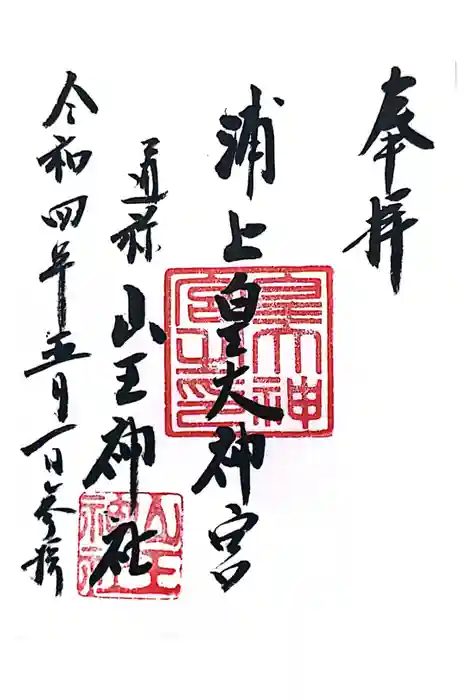 奉拝
浦上皇大神宮
通称 山王神社
令和四年五月一日参拝
皇大神宮之印
山王神社